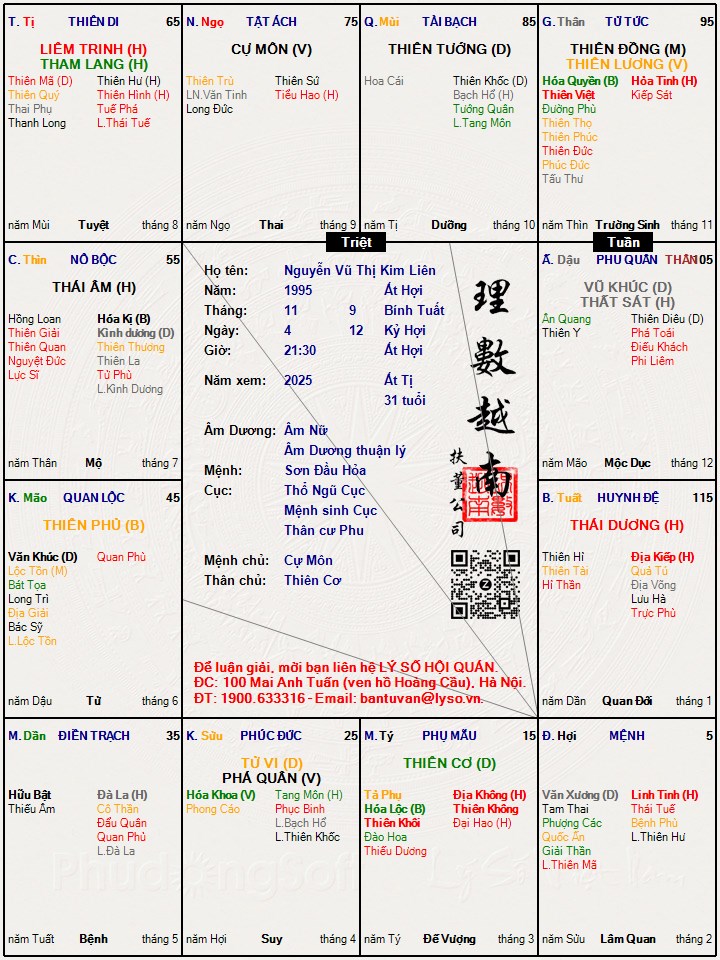 T. Tị THIÊN DI 65
LIÊM TRINH (H)
THAM LANG (H)
Thiên Mã (D) Thiên Hư (H)
Thiên Quý Thiên Hình (H)
Thai Phụ Tuế Phá
Thanh Long L.Thái Tuế
năm Mùi Tuyệt tháng 8
N. Ngọ TẬT ÁCH 75
CỰ MÔN (V)
Thiên Trù Thiên Sứ
LN.Văn Tinh Tiểu Hao (H)
Long Đức
năm Ngọ Thai tháng 9
Q. Mùi TÀI BẠCH 85
THIÊN TƯỚNG (D)
Hoa Cái Thiên Khốc (D)
Bạch Hổ (H)
Tướng Quân
L.Tang Môn
năm Tị Dưỡng tháng 10
G. Thân TỬ TỨC 95
THIÊN ĐỒNG (M)
THIÊN LƯƠNG (V)
Hóa Quyền (B) Hỏa Tinh (H)
Thiên Việt Kiếp Sát
Đường Phù
Thiên Thọ
Thiên Phúc
Thiên Đức
Phúc Đức
Tấu Thư
năm Thìn Trường Sinh tháng 11
Triệt
Tuần
C. Thìn NÔ BỘC 55
THÁI ÂM (H)
Hồng Loan Hóa Kị (B)
Thiên Giải Kình dương (D)
Thiên Quan Thiên Thương
Nguyệt Đức Thiên La
Lực Sĩ Tử Phù
L.Kình Dương
năm Thân Mộ tháng 7
Họ tên: Nguyễn Vũ Thị Kim Liên
Năm: 1995 Ất Hợi
Tháng: 11 9 Bính Tuất
Ngày: 4 12 Kỷ Hợi
Giờ: 21:30 Ất Hợi
Năm xem: 2025 Ất Tị
31 tuổi
Âm Dương: Âm Nữ
Âm Dương thuận lý
Mệnh: Sơn Đầu Hỏa
Cục: Thổ Ngũ Cục
Mệnh sinh Cục
Thân cư Phu
Mệnh chủ: Cự Môn
Thân chủ: Thiên Cơ
理數越南
扶董公司
Để luận giải, mời bạn liên hệ LÝ SỐ HỘI QUÁN.
ĐC: 100 Mai Anh Tuấn (ven hồ Hoàng Cầu), Hà Nội.
ĐT: 1900.633316 - Email: bantuvan@lyso.vn.
Ấ. Dậu PHU QUÂN THÂN 105
VŨ KHÚC (D)
THẤT SÁT (H)
Ân Quang Thiên Diêu (D)
Thiên Y Phá Toái
Điếu Khách
Phi Liêm
năm Mão Mộc Dục tháng 12
K. Mão QUAN LỘC 45
THIÊN PHỦ (B)
Văn Khúc (D) Quan Phù
Lộc Tồn (M)
Bát Tọa
Long Trì
Địa Giải
Bác Sỹ
L.Lộc Tồn
năm Dậu Tử tháng 6
B. Tuất HUYNH ĐỆ 115
THÁI DƯƠNG (H)
Thiên Hỉ Địa Kiếp (H)
Thiên Tài Quả Tú
Hỉ Thần Địa Võng
Lưu Hà
Trực Phù
năm Dần Quan Đới tháng 1
M. Dần ĐIỀN TRẠCH 35
Hữu Bật Đà La (H)
Thiếu Âm Cô Thần
Đẩu Quân
Quan Phủ
L.Đà La
năm Tuất Bệnh tháng 5
K. Sửu PHÚC ĐỨC 25
TỬ VI (D)
PHÁ QUÂN (V)
Hóa Khoa (V) Tang Môn (H)
Phong Cáo Phục Binh
L.Bạch Hổ
L.Thiên Khốc
năm Hợi Suy tháng 4
M. Tý PHỤ MẪU 15
THIÊN CƠ (D)
Tả Phụ Địa Không (H)
Hóa Lộc (B) Thiên Không
Thiên Khôi Đại Hao (H)
Đào Hoa
Thiếu Dương
năm Tý Đế Vượng tháng 3
Đ. Hợi MỆNH 5
Văn Xương (D) Linh Tinh (H)
Tam Thai Thái Tuế
Phượng Các Bệnh Phù
Quốc Ấn L.Thiên Hư
Giải Thần
L.Thiên Mã
năm Sửu Lâm Quan tháng 2